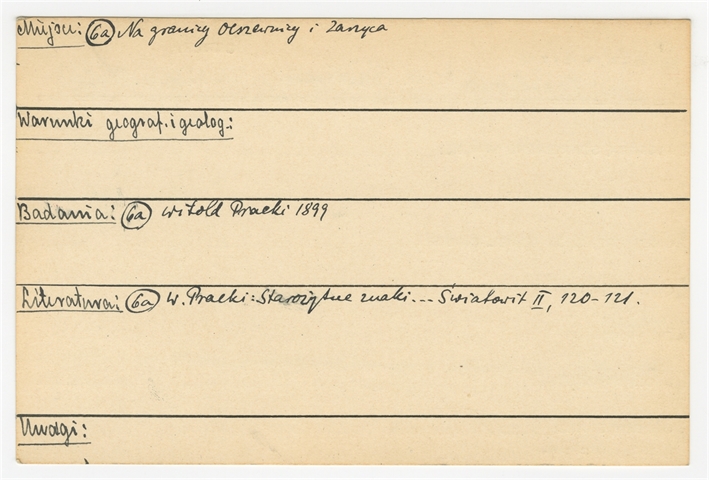 Miejsce: (6a) Na granicy Olszewnicy i Zasryca
Warunki geograf. i geolog.:
Badania: (6a) Witold Pracki 1899
Literatura: (6a) W. Pracki: Starożytne znaki... Światowit II, 120-121.
Uwagi: